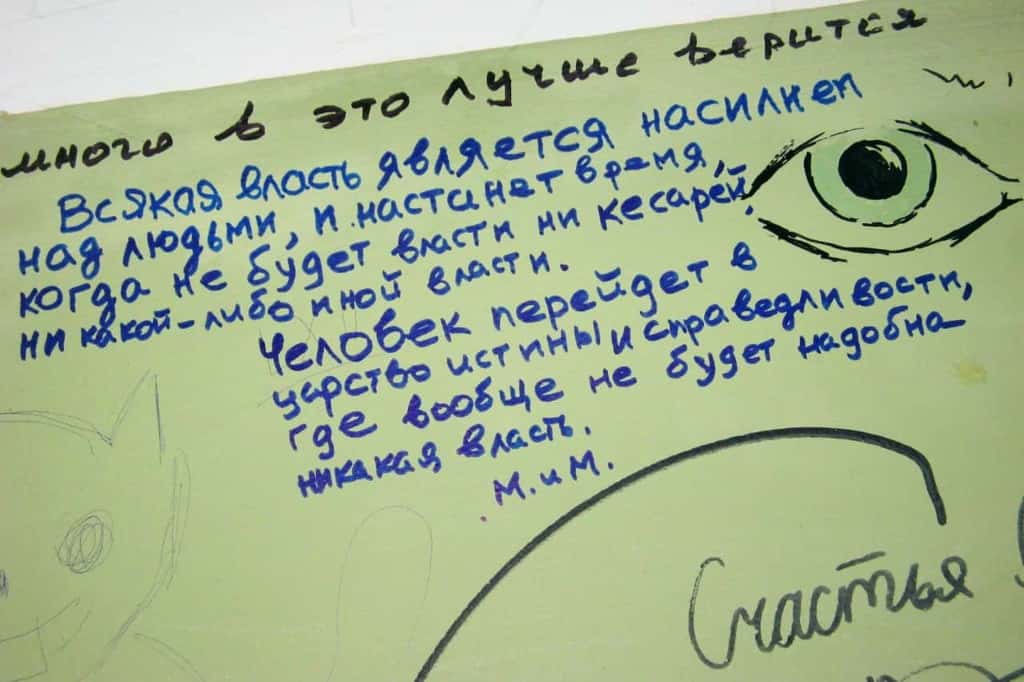 много в это лучше верится
Всякая власть является насилием
над людьми, и настанет время,
когда не будет власти ни кесарей,
ни какой-либо иной власти.
Человек перейдет в
царство истины и справедливости,
где вообще не будет надобна
никакая власть.
М. и М.
Счастья